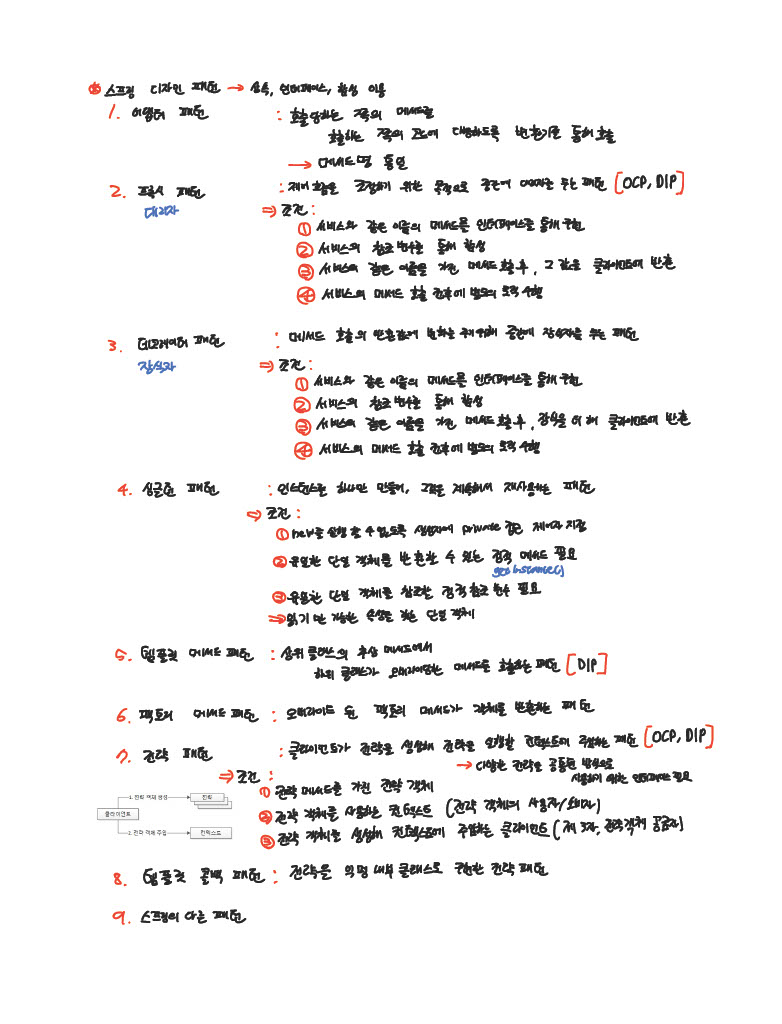 스프링 디자인 패턴 → 상속, 인터페이스, 합성 이용
1. 어댑터 패턴 : 호출당하는 쪽의 메서드를
호출하는 쪽의 코드에 대응하도록 변환기를 통해 호출
→ 메서드명 통일
2. 프록시 패턴 : 제어 흐름을 조정하기 위한 목적으로 중간에 대리자를 두는 패턴 [OCP, DIP]
대리자
⇒ 조건 :
① 서비스와 같은 이름의 메서드를 인터페이스를 통해 구현
② 서비스의 참조 변수를 통해 합성
③ 서비스의 같은 이름을 가진 메서드 호출 후, 그 값을 클라이언트에 반환
④ 서비스의 메서드 호출 전후에 별도의 로직 수행
3. 데코레이터 패턴 : 메서드 호출의 반환값에 변화를 주기 위해 중간에 장식자를 두는 패턴
장식자
⇒ 조건 :
① 서비스와 같은 이름의 메서드를 인터페이스를 통해 구현
② 서비스의 참조 변수를 통해 합성
③ 서비스의 같은 이름을 가진 메서드 호출 후, 장식을 더해 클라이언트에 반환
④ 서비스의 메서드 호출 전후에 별도의 로직 수행
4. 싱글톤 패턴 : 인스턴스를 하나만 만들어, 그것을 계속해서 재사용하는 패턴
⇒ 조건 :
① new를 실행 할 수 없도록 생성자에 private 접근 제어자 지정
② 유일한 단일 객체를 반환할 수 있는 정적 메서드 필요
getInstance()
③ 유일한 단일 객체를 참조할 정적 참조 변수 필요
⇒ 읽기만 가능한 속성을 갖는 단일 객체
5. 템플릿 메서드 패턴 : 상위 클래스의 추상 메서드에서
하위 클래스가 오버라이딩한 메서드를 호출하는 패턴 [DIP]
6. 팩토리 메서드 패턴 : 오버라이드 된 팩토리 메서드가 객체를 반환하는 패턴
7. 전략 패턴 : 클라이언트가 전략을 생성해 전략을 실행할 컨텍스트에 주입하는 패턴 [OCP, DIP]
→ 다양한 전략을 공통된 방식으로
사용하기 위한 인터페이스 필요
⇒ 조건 :
① 전략 메서드를 가진 전략 객체
② 전략 객체를 사용하는 컨텍스트 (전략 객체의 사용자/소비자)
③ 전략 객체를 생성해 컨텍스트에 주입하는 클라이언트 (제 3자, 전략 객체 공급자)
1. 전략 객체 생성
전략
클라이언트
2. 전략 객체 주입
컨텍스트
8. 템플릿 콜백 패턴 : 전략을 익명 내부 클래스로 구현한 전략 패턴
9. 스프링의 다른 패턴